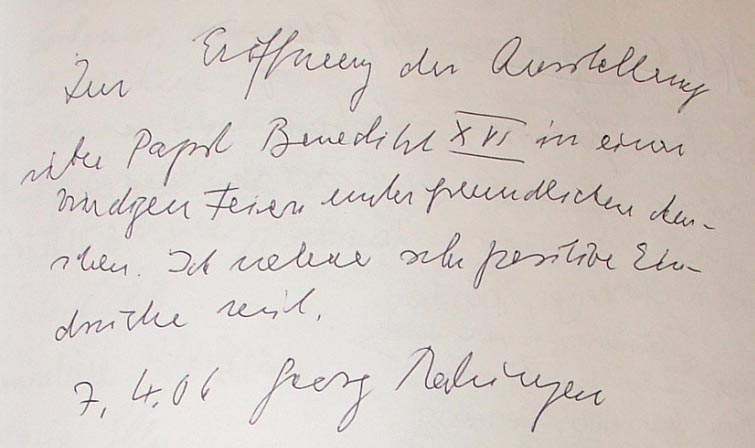 Zur Eröffnung der Ausstellung
über Papst Benedikt XVI in einer
würdigen Feier unter freundlichen Men-
schen. Ich nehme sehr positive Ein-
drücke mit.
7.4.06 Georg Ratzinger